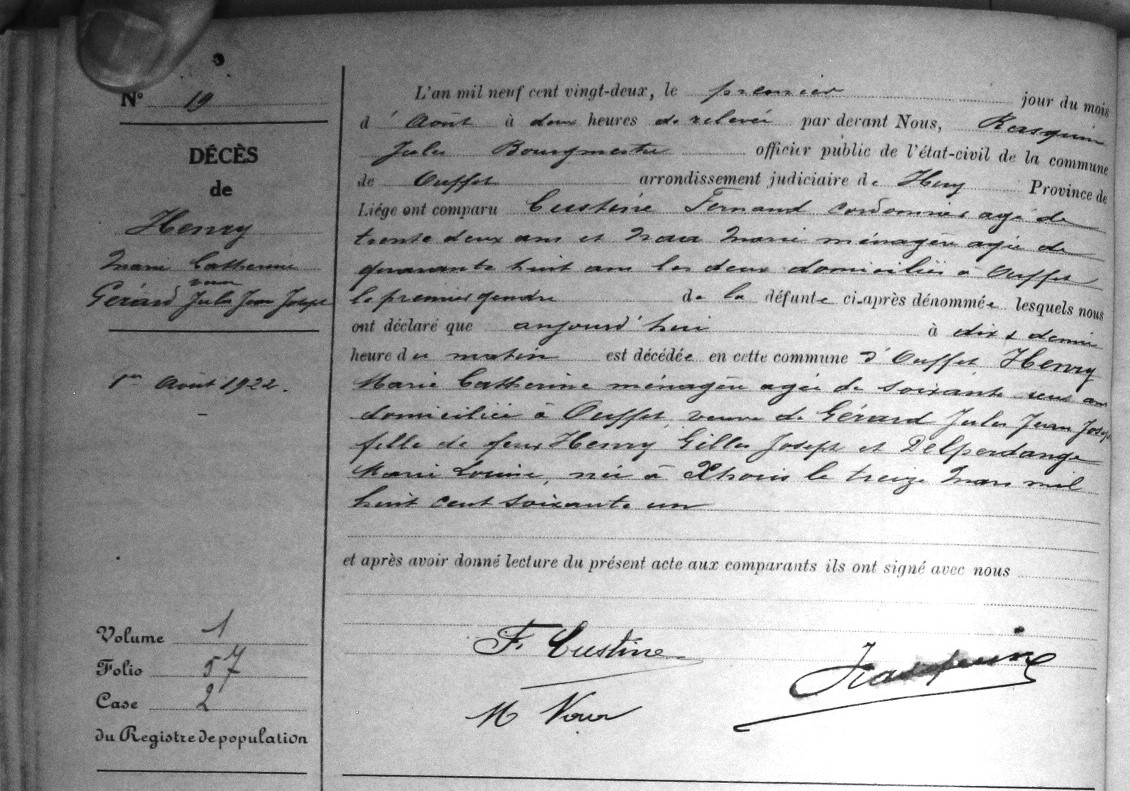 N° 19
DÉCÈS
de
Henry
Marie Catherine
veuve
Gérard Jules Jean Joseph
1er Août 1922.
Volume 1
Folio 57
Case 2
du Registre de population
L'an mil neuf cent vingt-deux, le premier jour du mois
d'Août à deux heures de relevée par devant Nous, Rasquin
Jules Bourgmestre officier public de l'état-civil de la commune
de Ouffet arrondissement judiciaire de Huy Province de
Liége ont comparu Custine Fernand cordonnier agé de
trente deux ans et Marie ménagère agée de
quarante huit ans les deux domiciliés à Ouffet
le premier gendre de la défunte ci-après dénommée lesquels nous
ont déclaré que aujourd'hui à dix & demie
heure du matin est décédée en cette commune d'Ouffet Henry
Marie Catherine ménagère agée de soixante ans
domiciliée à Ouffet, veuve de Gérard Jules Jean Joseph
fille de feus Henry Gilles Joseph et Delperdange
Marie Louise, née à Xhoris le treize Mars mil
huit cent soixante un
et après avoir donné lecture du présent acte aux comparants ils ont signé avec nous
F. Custine
Rasquin
M